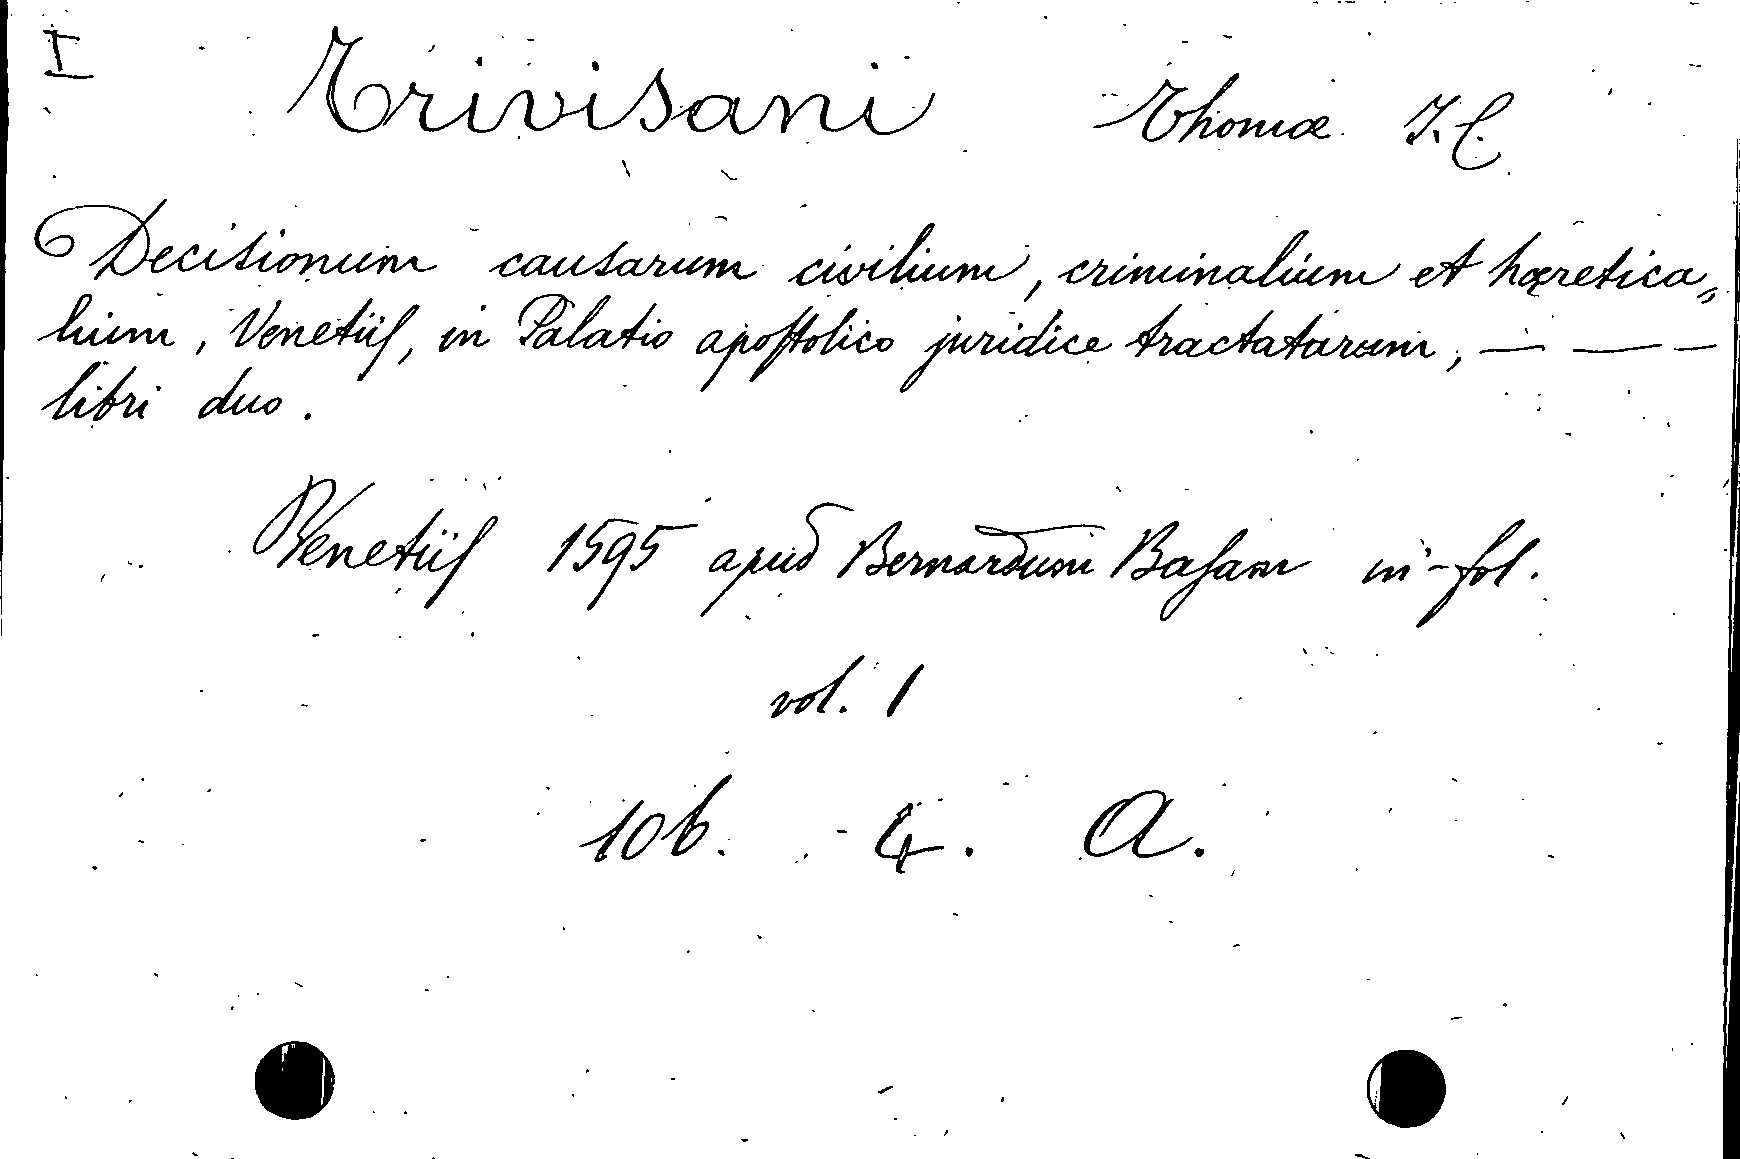 I
Trivisani Thomæ J. C.
Decisionum causarum civilium, criminalium et hæretica„
lium, Venetiis, in Palatio apostolico juridice tractatarum, — — —
libri duo.
Venetiis 1595 apud Bernardum Basam in-fol.
vol. 1
106. 4. A.